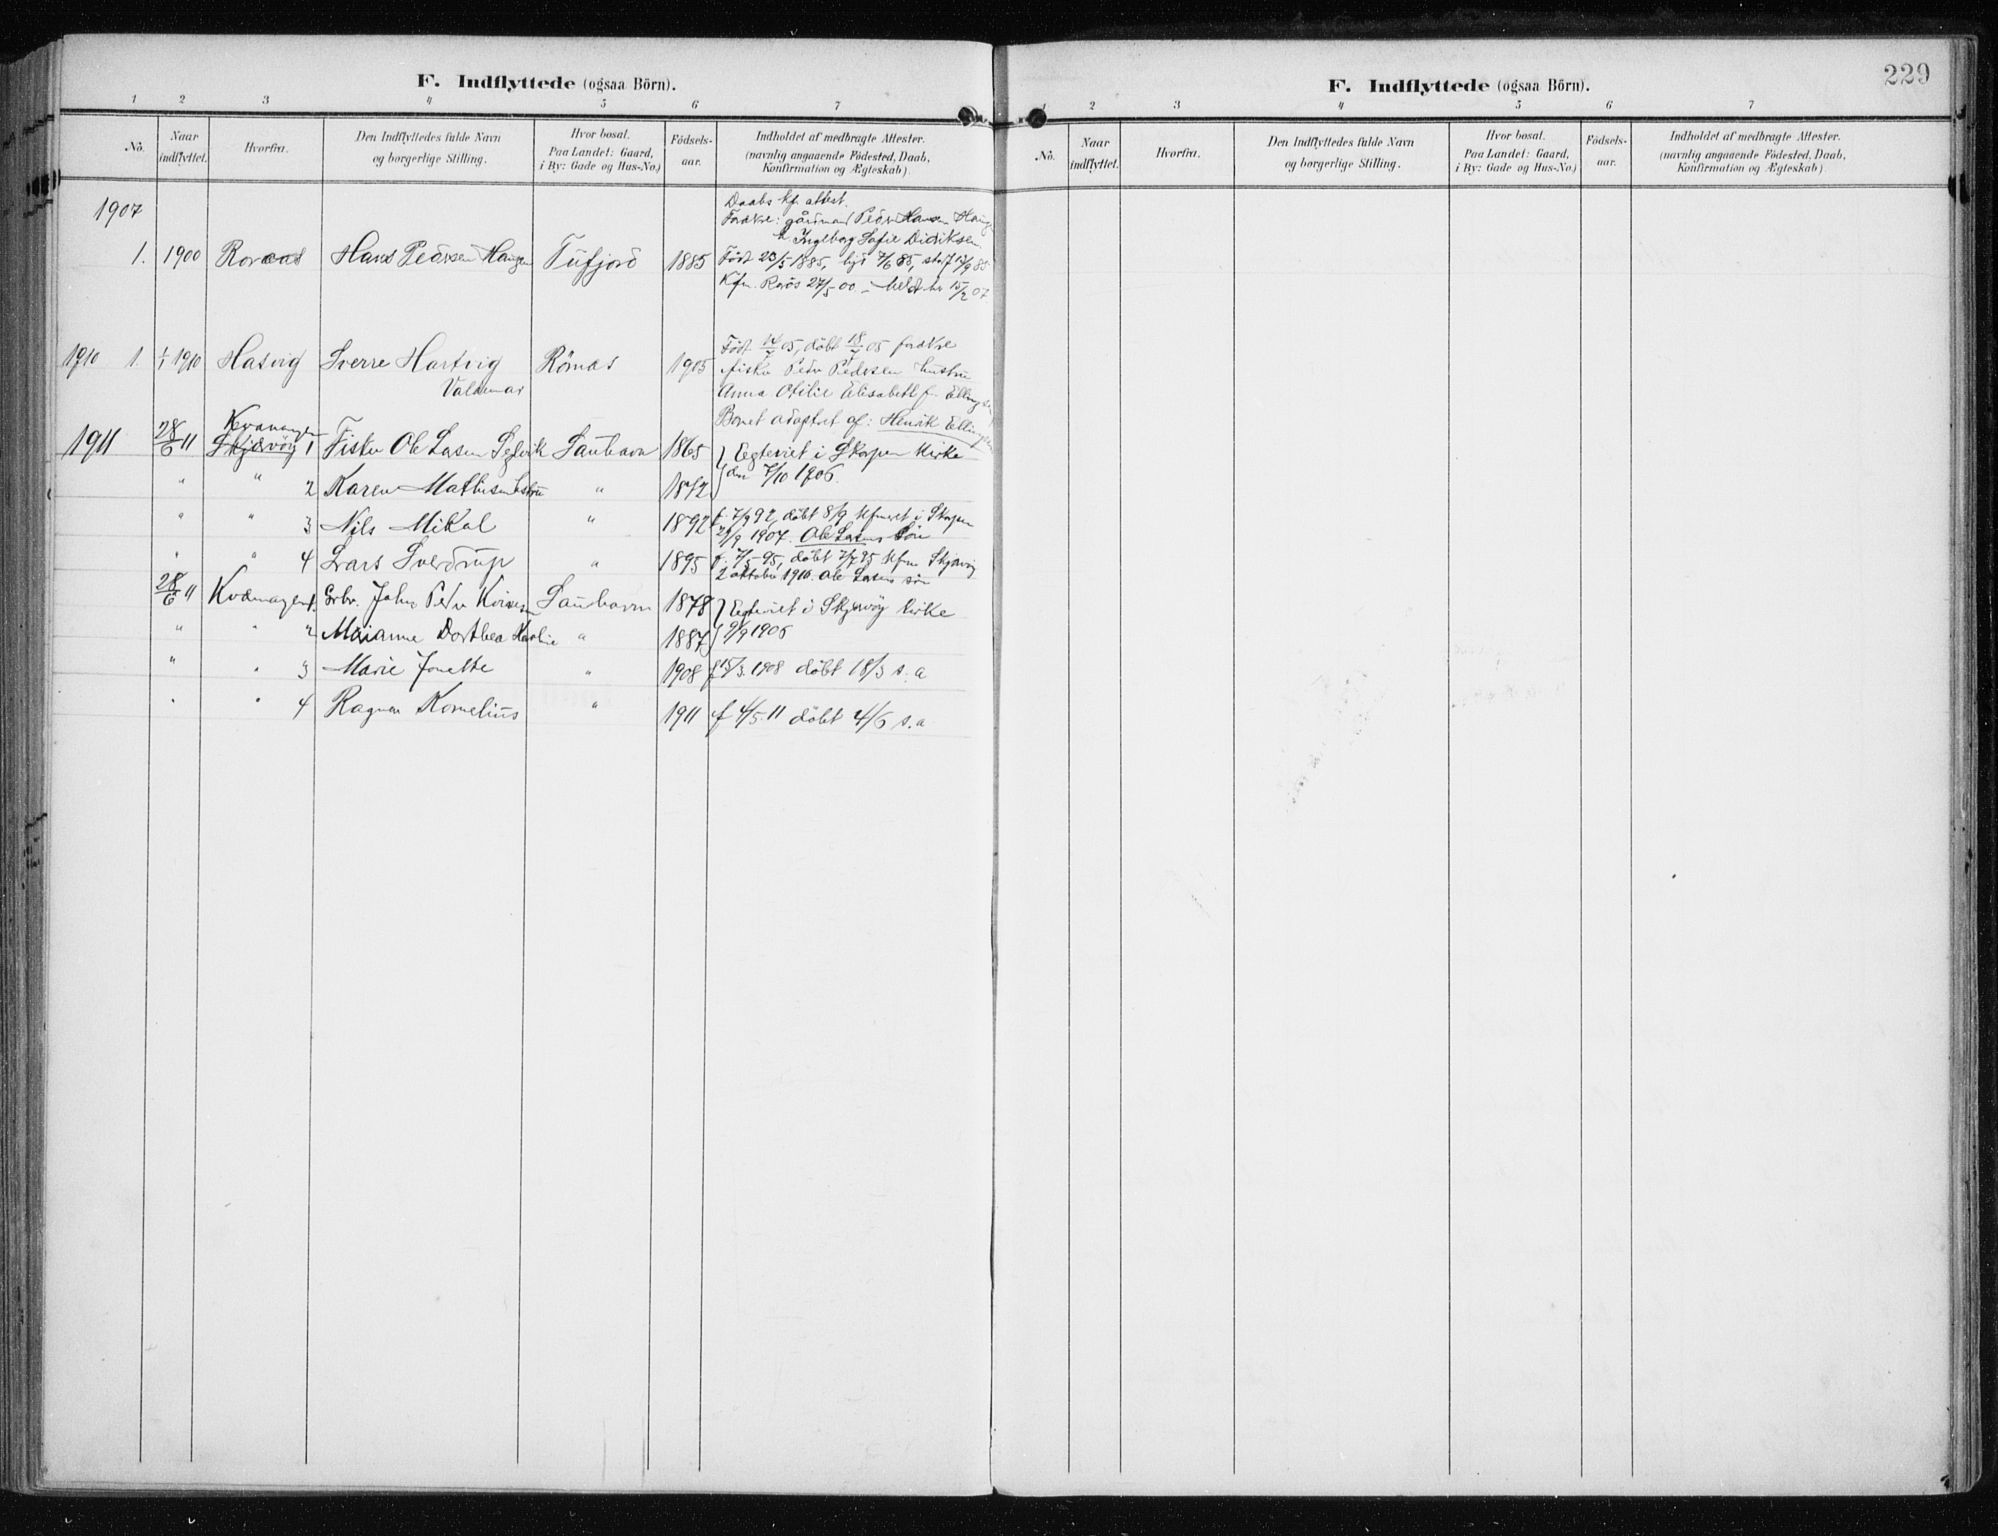 F. Indflyttede (ogsaa Börn).
1 2 3 4 5 6 7
No. Naar indflyttet. Hvorfra. Den Indflyttedes fulde Navn og borgerlige Stilling. Hvor bosat. Paa Landet: Gaard, i By: Gade og Hus-No.) Födsels-aar. Indholdet af medbragte Attester. (navnlig angaaende Födested, Daab, Konfirmation og Ægteskab)
1907
Daabs Kf. attest.
Forældre: gårdmand Peder Hansen Haugen
Ingeborg Sofie Didriksen.
1. 1900 Hans Pedersen Haugen Tufjord 1885 Født 23/5 1885, 7/6 85,
Kfm. Rørös 27/5 00. Meldt her 15/2 07
1910 1. 1/1 1910 Hasvig Sverre Hartvig Römas 1905 Født 14/7 05, döbt 18/7 05 forældre
Valdemar
fisker Peder Pedersen hustru
Anna Otilie Elisabeth f. Ellingsen
Barnet adoptert af: Henrik Ellingsen
Kvænangen
1911 28/6 11 Skjervöy 1 Fisker Ole Larsen Segelvik Sauhavn 1865 } Egteviet i Skorpen Kirke
" " 2 Karen Mathisen hustru " 1872 } den 7/10 1906.
" " 3 Nils Mikal " 1892 f. 7/9 92, döbt 8/9 kfmeret i Skorpen
1907. Ole Larsens sön
" " 4 Lars Sverdrup " 1895 f. 7/5 95, döbt 7/7 95 kfm Skjervöy
2 oktober 1910. Ole Larsens sön
28/6 11 Kvænangen 1. Grbr. Johan Peder Sauhavn 1878 } Egteviet i Skjervöy kirke
" " 2 Marianne Dorthea " 1887 } 9/9 1906
" " 3 Marie Jonette " 1908 f 15/3 1908 döbt 18/3 s.a
" " 4 Ragnar Kornelius " 1911 f 4/5 11 döbt 4/6 s.a
229
F. Indflyttede (ogsaa Börn).
1 2 3 4 5 6 7
No. Naar indflyttet. Hvorfra. Den Indflyttedes fulde Navn og borgerlige Stilling. Hvor bosat. Paa Landet: Gaard, i By: Gade og Hus-No.) Födsels-aar. Indholdet af medbragte Attester. (navnlig angaaende Födested, Daab, Konfirmation og Ægteskab)